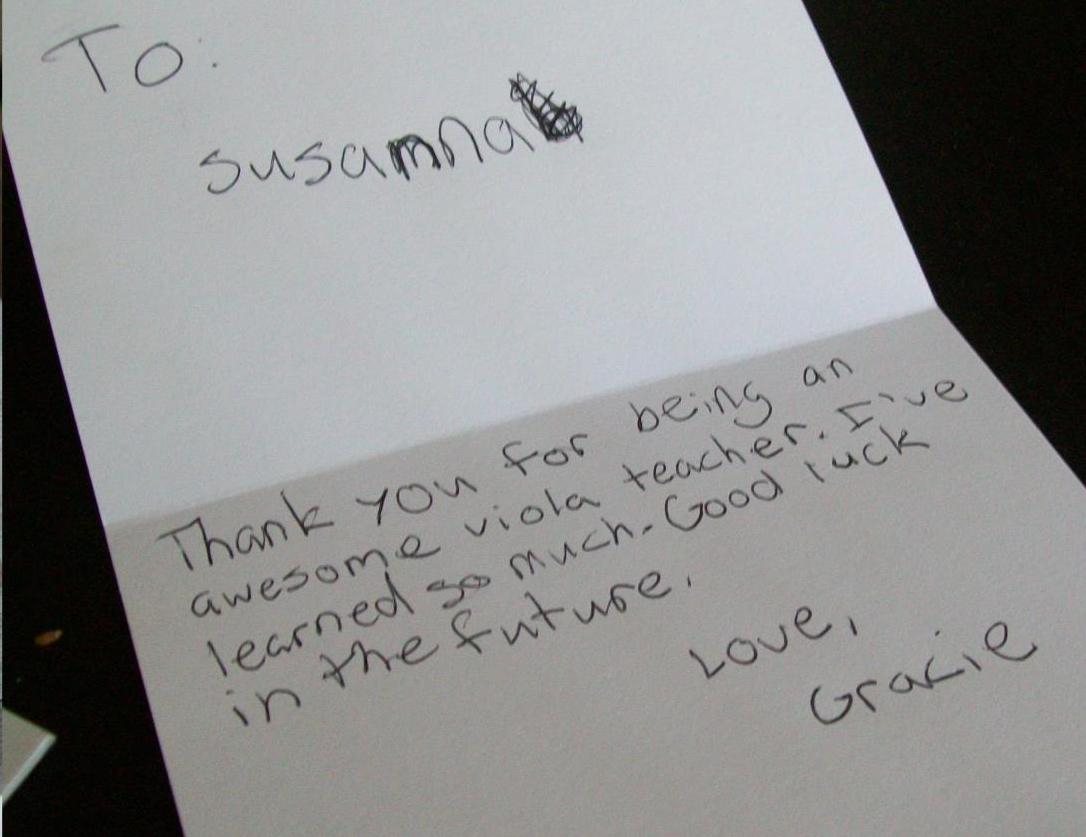 To:
susanna
Thank you for being an
awesome viola teacher. I've
learned so much. Good luck
in the future.
Love,
Gracie